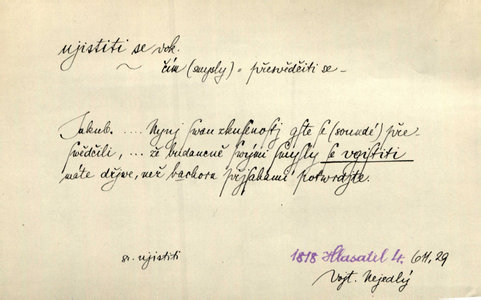 ujistiti se dok.
čím (smysly) = přesvědčiti se –
Jakub. .... Nynj swau zkussenostj gste se (saudné) pře-
swědčili, ... že budaucně swými smysly se vgistiti
máte dřjwe, než bachora přjsahami potwrdjte.
sr. ujistiti
1818 Hlasatel 4. 611, 29
Vojt. Nejedlý